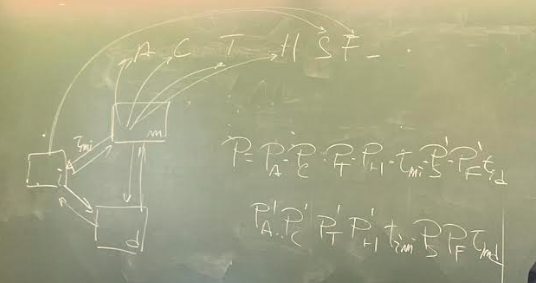 A C T H S F -
τmi
m
P = P_A · P_C · P_T · P_H · t_mi · P'_S · P'_F t_id
d
P'_A · P'_C P'_T P'_H t_im P_S P_F τ_md